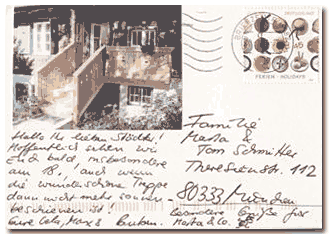 FERIEN - HOLIDAYS
Hallo Ihr lieben Städter!
Hoffentlich sehen wir
Euch bald, insbesondere
am 18., auch wenn
die wunderschöne Treppe
dann nicht mehr
beschrieben ist!
Eure Max &
Familie
Marta &
Tom Schmitter
Theresienstr. 112
80333 München
Besondere Grüße für
Marta & Co.